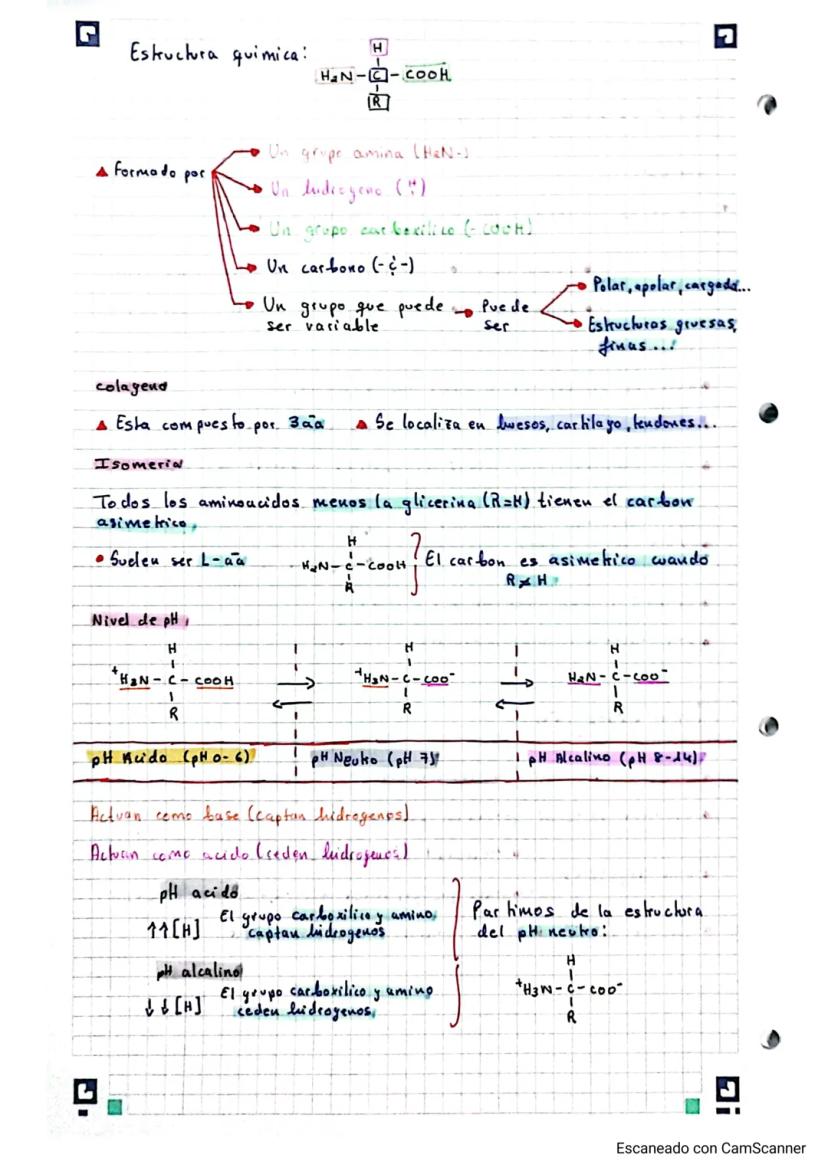 Estructura quimica:
H
H2N-C-COOH
R
▲ Formado por
Un grupo amina (H2N-)
Un hidrogeno (H)
Un grupo carboxilico (-COOH)
Un carbono (-C-)
Un grupo que puede
ser variable
Puede
ser
Polar, apolar, cargada...
Estructuras gruesas,
finas...
colageno
▲ Esta compuesto por 3 aa ▲ Se localiza en huesos, cartilago, tendones...
Isomeria
Todos los aminoacidos menos la glicerina (R=H) tienen el carbon
asimetrico.
• Suelen ser L-aa
H
H2N-C-COOH
R
El carbon es asimetrico cuando
R≠H
Nivel de pH
H H H
+H3N-C-COOH +H3N-C-COO- H2N-C-COO-
R R R
pH Acido (pH 0-6) pH Neutro (pH 7) pH Alcalino (pH 8-14)
Actuan como base (captan hidrogenos)
Actuan como acido (ceden hidrogenos)
pH acido
↑↑[H] El grupo carboxilico y amino
captan hidrogenos
pH alcalino
↓↓[H] El grupo carboxilico y amino
ceden hidrogenos
Partimos de la estructura
del pH neutro:
H
+H3N-C-COO-
R
Escaneado con CamScanner